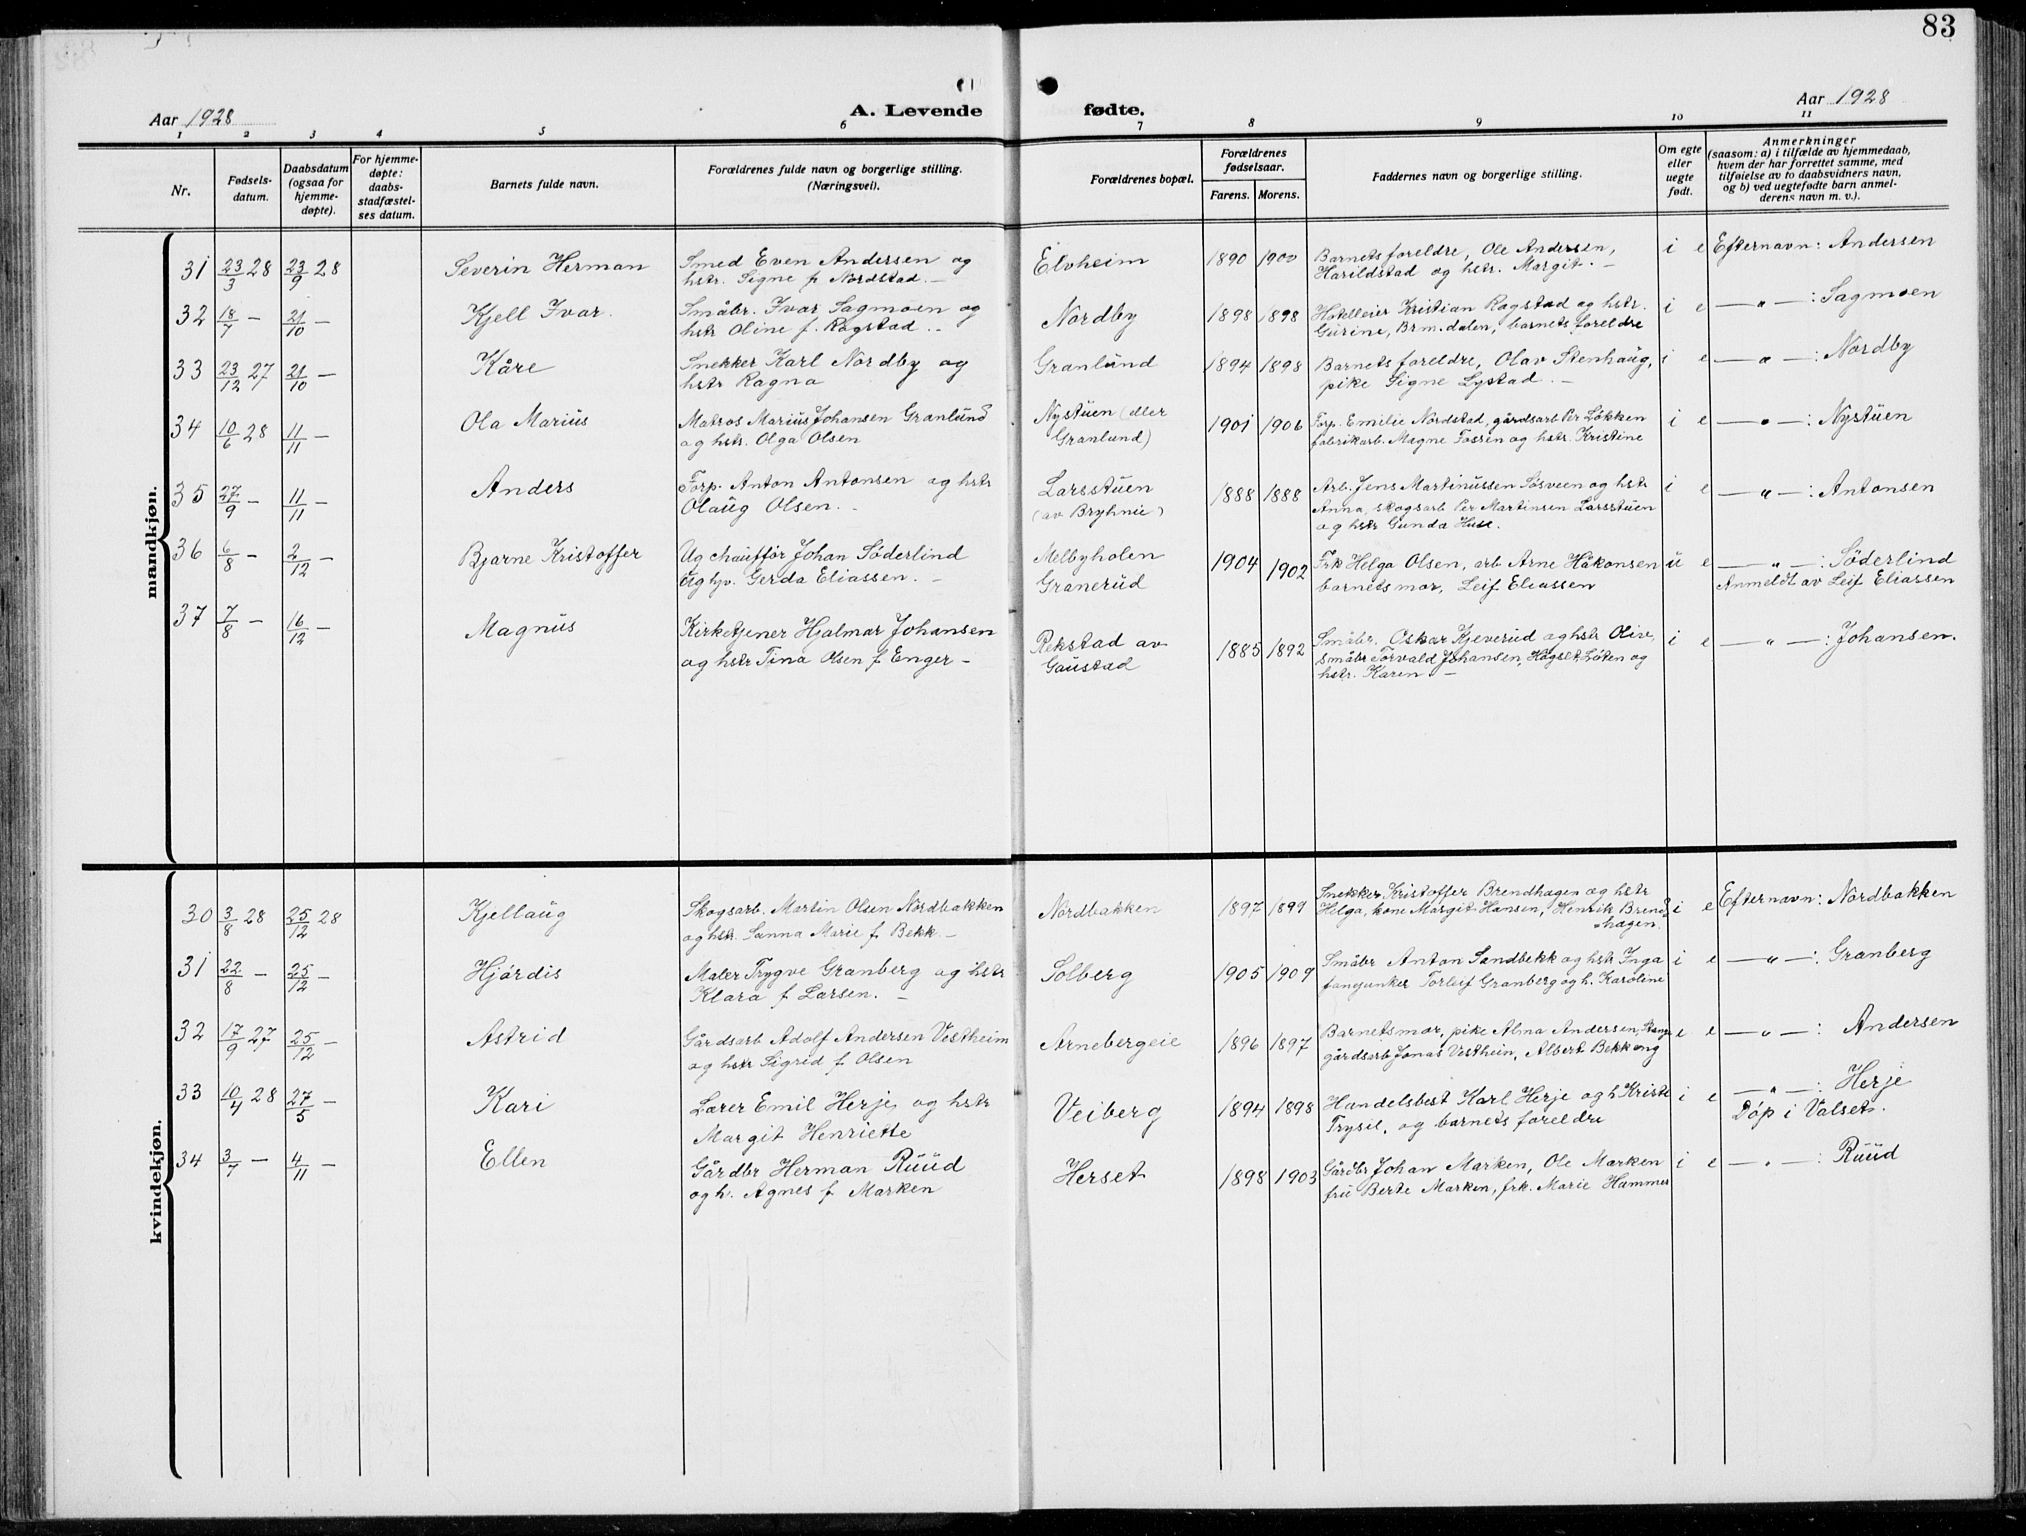 83
Aar 1928
A. Levende fødte.
Aar 1928
1 2 3 4 5 6 7 8 9 10 11
Nr.
Fødsels-
datum.
Daabsdatum
(ogsaa for
hjemme-
døpte).
For hjemme-
døpte:
daabs-
stadfæstel-
ses datum.
Barnets fulde navn.
Forældrenes fulde navn og borgerlige stilling.
(Næringsvei).
Forældrenes bopæl.
Forældrenes
fødselsaar.
Farens. Morens.
Faddernes navn og borgerlige stilling.
Om egte
eller
uegte
født.
Anmerkninger
(saasom: a) i tilfælde av hjemmedaab,
hvem der har forrettet samme, med
tilføielse av to daabsvidners navn,
og b) ved uegtefødte barn anmel-
derens navn m. v.).
mandkjøn.
31 23/3 28 23/9 28 Severin Herman Smed Even Andersen og Elvheim 1890 1900 Barnets foreldre, Ole Andersen, i e Efternavn: Andersen
hstr. Signe f. Nordstad. – Harildstad og hstr. Margit. –
32 18/7 – 21/10 – Kjell Ivar. Småbr. Ivar Sagmoen og Nordby 1898 1898 Hotelleier Kristian Rogstad og hstr. i e – " – : Sagmoen
hstr Oline f. Rogstad. – Gurine, Brm.dalen, barnets foreldre
33 23/12 27 21/10 – Kåre Snekker Karl Nordby og Granlund 1894 1898 Barnets foreldre, Olav Stenhaug, i e – " – : Nordby
hstr Ragna pike Signe Lystad. –
34 10/6 28 11/11 – Ola Marius Matros Marius Johansen Granlund Nystuen (eller 1901 1906 Forp. Emilie Nordstad, gårdsarb Per Løkken i e – " – : Nystuen
og hstr. Olga Olsen Granlund) fabrikarb. Magne Fossen og hstr. Kristine
35 27/9 – 11/11 – Anders Forp. Anton Antonsen og hstr Larsstuen 1888 1888 Arb. Jens Martinussen Søsveen og hstr i e – " – : Antonsen
Olaug Olsen. – (av Bryhnie) Anna, skogsarb Per Martinsen Larsstuen
og hstr Gunda Huse.
36 6/8 – 2/12 – Bjarne Kristoffer Ug chauffør Johan Söderlind Melbyholen 1904 1902 Frk Helga Olsen, arb Arne Håkonsen u e – " – : Söderlind
Ug hjv. Gerda Eliassen. – Granerud barnets mor, Leif Eliassen Anmeldt av Leif Eliassen
37 7/8 – 16/12 – Magnus Kirketjener Hjalmar Johansen Rekstad av 1885 1892 Småbr. Oskar Kjeverud og hstr Olive, i e – " – : Johansen.
og hstr Tina Olsen f Enger – Gaustad småbr Torvald Johansen, Høgset, Løten og
hstr. Karen –
kvindekjøn.
30 3/8 28 25/12 28 Kjellaug Skogsarb. Martin Olsen Nordbakken Nordbakken 1897 1899 Snekker Kristoffer Brendhagen og hstr i e Efternavn: Nordbakken
og hstr. Sanna Marie f Bekk. – Helga, kone Margit Hansen, Henrik Brend-
hagen.
31 22/8 – 25/12 – Hjördis Maler Trygve Granberg og hstr Solberg 1905 1909 Småbr Anton Sandbekk og hstr Inga i e – " – : Granberg
Klara f Larsen. – fanejunker Torleif Granberg og h. Karoline
32 17/9 27 25/12 – Astrid Gårdsarb Adolf Andersen Vestheim Arnebergeie 1896 1897 Barnets mor, pike Alma Andersen, e e – " – : Andersen
og hstr Sigrid f Olsen gårdsarb Jonas Vestheim, Albert Bekkeng
33 10/4 28 27/5 – Kari Lærer Emil Herje og hstr Veiberg 1894 1898 Handelsbest Karl Herje og h Kristi i e – " – : Herje
Margit Henriette Trysil, og barnets foreldre Döp i Valset.
34 3/7 – 4/11 – Ellen Gårdbr Herman Ruud Herset 1898 1903 Gårdbr Johan Marken, Ole Marken i e – " – : Ruud
og h. Agnes f Marken fru Berte Marken, frk. Marie Hammer